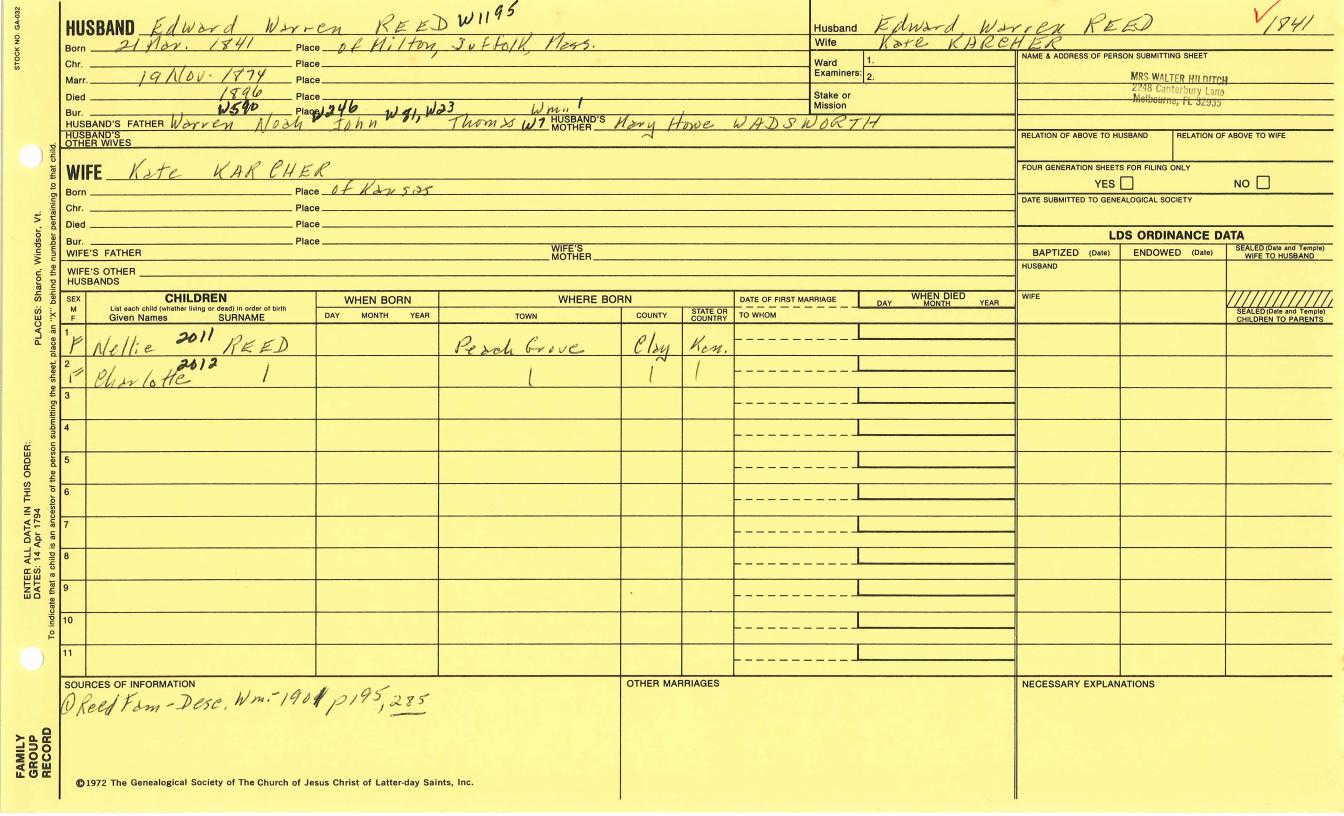 STOCK NO. GA-032
HUSBAND Edward Warren REED W1195
Born 21 Mar. 1841 Place of Milton, Suffolk, Mass.
Chr. Place
Marr. 19 Nov. 1874 Place
Died 1896 Place
Bur. W590 Place W246 W81, W23 Wm., 1
HUSBAND'S FATHER Warren Noah John Thomas W7 HUSBAND'S MOTHER Mary Howe WADSWORTH
HUSBAND'S OTHER WIVES
Husband Edward Warren REED 1841
Wife Kate KARCHER
Ward Examiners: 1.
2.
Stake or Mission
NAME & ADDRESS OF PERSON SUBMITTING SHEET
MRS WALTER HILDITCH
2248 Canterbury Lane
Melbourne, FL 32935
RELATION OF ABOVE TO HUSBAND RELATION OF ABOVE TO WIFE
FOUR GENERATION SHEETS FOR FILING ONLY
YES NO
DATE SUBMITTED TO GENEALOGICAL SOCIETY
WIFE Kate KARCHER
Born Place of Kansas
Chr. Place
Died Place
Bur. Place
WIFE'S FATHER WIFE'S MOTHER
WIFE'S OTHER HUSBANDS
LDS ORDINANCE DATA
BAPTIZED (Date) ENDOWED (Date) SEALED (Date and Temple) WIFE TO HUSBAND
HUSBAND
WIFE
SEALED (Date and Temple) CHILDREN TO PARENTS
SEX M F
CHILDREN
List each child (whether living or dead) in order of birth
Given Names SURNAME
WHEN BORN
DAY MONTH YEAR
WHERE BORN
TOWN COUNTY STATE OR COUNTRY
DATE OF FIRST MARRIAGE
TO WHOM
WHEN DIED
DAY MONTH YEAR
1 F Nellie 2011 REED Peach Grove Clay Kan.
2 F Charlotte 2012
3
4
5
6
7
8
9
10
11
SOURCES OF INFORMATION
① Reed Fam - Desc. Wm. - 1901 p195, 285
OTHER MARRIAGES
NECESSARY EXPLANATIONS
©1972 The Genealogical Society of The Church of Jesus Christ of Latter-day Saints, Inc.
ENTER ALL DATA IN THIS ORDER:
DATES: 14 Apr 1794
PLACES: Sharon, Windsor, Vt.
To indicate that a child is an ancestor of the person submitting the sheet, place an "X" behind the number pertaining to that child.
FAMILY GROUP RECORD